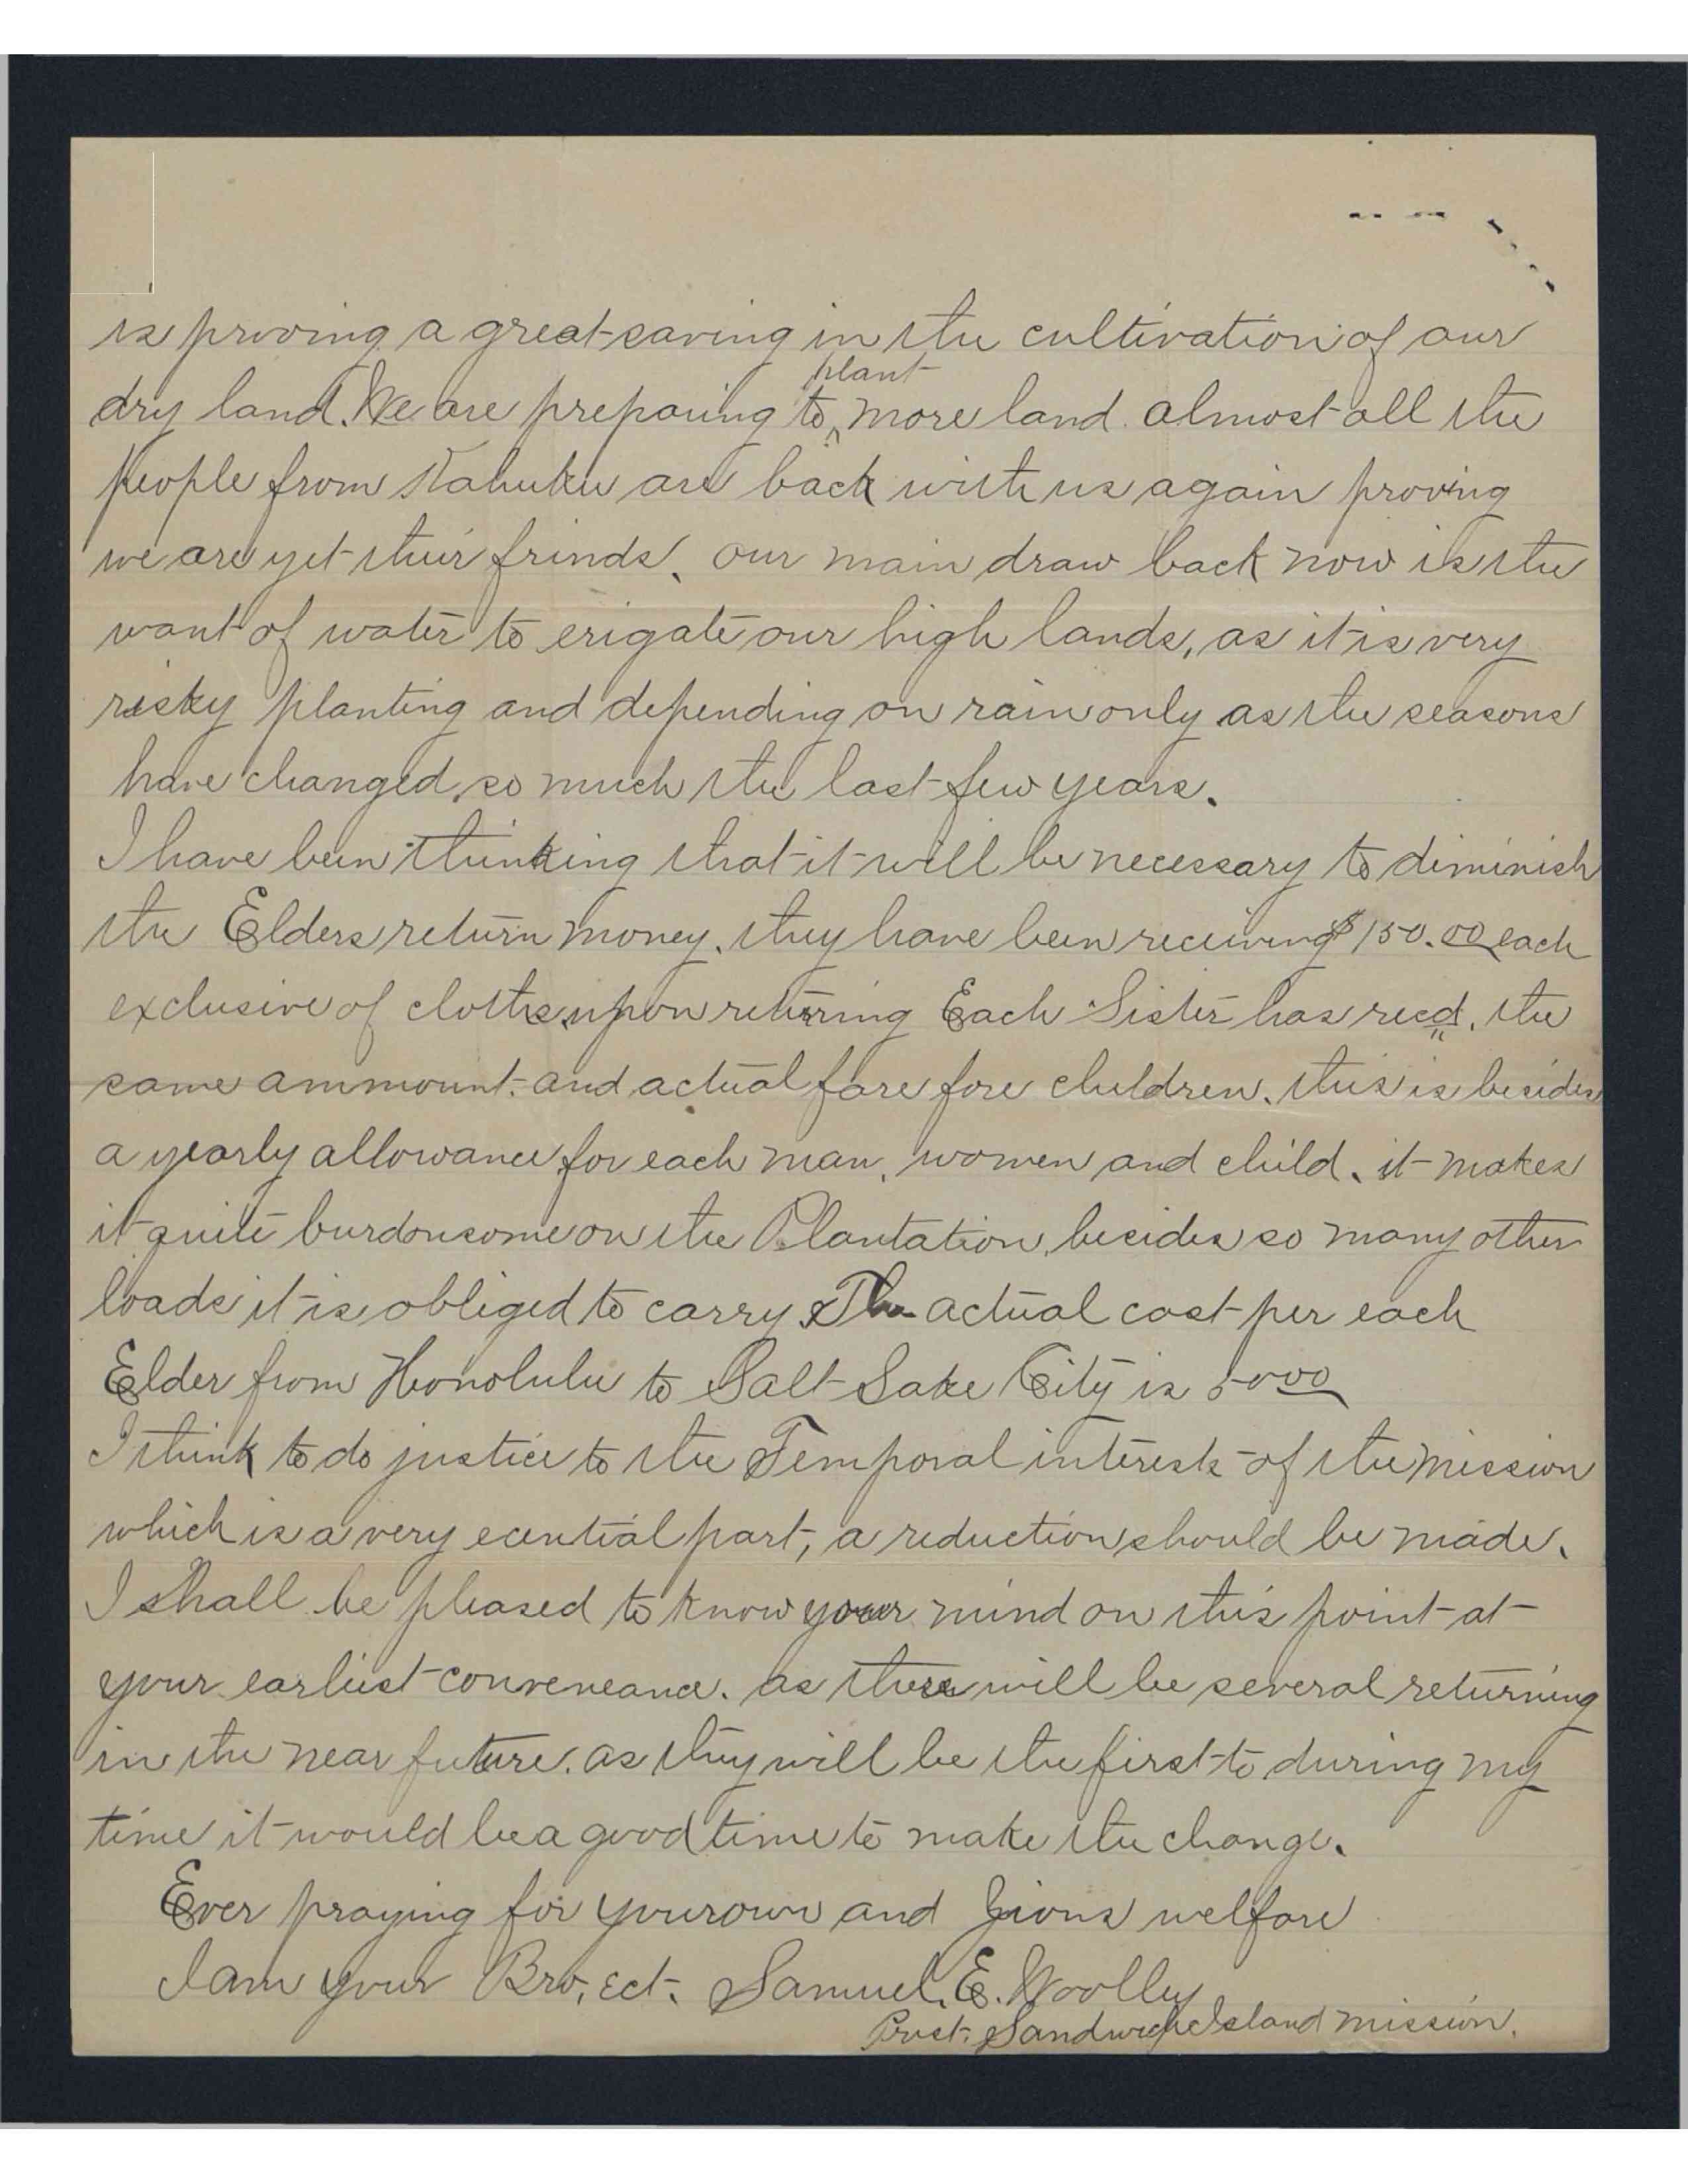 is proving a great saving in the cultivation of our
plant
dry land. We are preparing to ^ more land. almost all the
people from Kahuku are back with us again proving
we are yet their frinds. our main draw back now is the
want of water to erigate our high lands, as it is very
risky planting and depending on rain only as the seasons
have changed so much the last few years.
I have been thinking that it will be necessary to diminish
the Elders return money. they have been receiving $150.00 each
exclusive of clothes upon returing Each Sister has recd. the
same ammount. and actual fare fore children. this is besides
a yearly allowance for each man, women and child. it makes
it quite burdonsome on the Plantation, besides so many other
loads it is obliged to carry. The actual cost per each
Elder from Honolulu to Salt Lake City is 5000
I think to do justice to the Temporal interests of the mission
which is a very ecential part, a reduction should be made.
I shall be pleased to know your mind on this point at
your earliest conveneance. as there will be several returning
in the near future. as they will be the first to during my
time it would be a good time to make the change.
Ever praying for your own and Zions welfare
I am your Bro, ect. Samuel. E. Woolley
Prest. Sandwich Island mission.